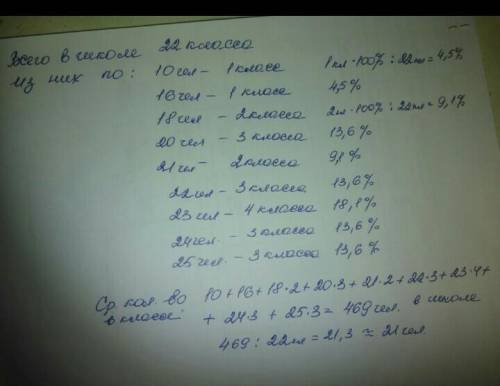 Всего в школе 22 класса
из них по: 10 чел - 1 класс 1 кл · 100% : 22 кл = 4,5%
16 чел - 1 класс 4,5%
18 чел - 2 класса 2 кл · 100% : 22 кл = 9,1%
20 чел - 3 класса 13,6%
21 чел - 2 класса 9,1%
22 чел - 3 класса 13,6%
23 чел - 4 класса 18,1%
24 чел. - 3 класса 13,6%
25 чел. - 3 класса 13,6%
Ср. кол. во 10 + 16 + 18·2 + 20·3 + 21·2 + 22·3 + 23·4 +
в классе: + 24·3 + 25·3 = 469 чел. в школе
469 : 22 кл = 21,3 ≈ 21 чел